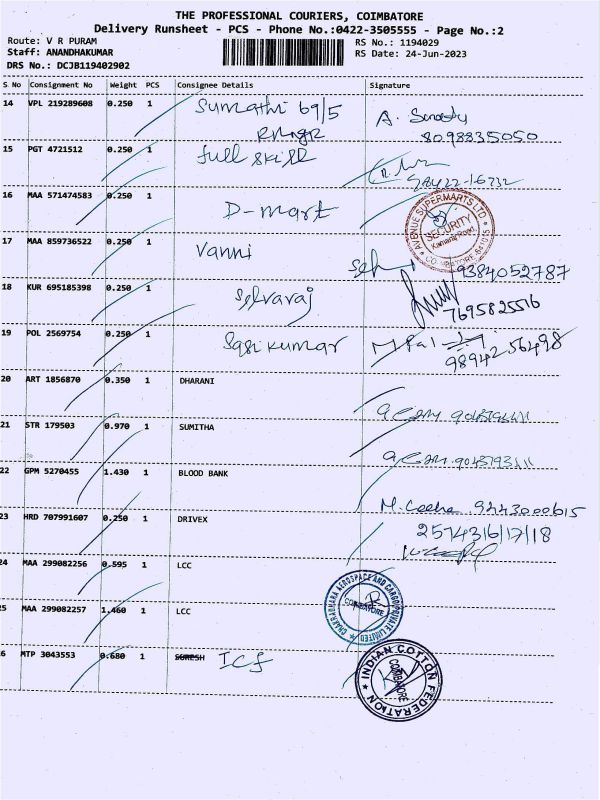 THE PROFESSIONAL COURIERS, COIMBATORE
Delivery Runsheet - PCS - Phone No.:0422-3505555 - Page No.:2
Route: V R PURAM
RS No.: 1194029
Staff: ANANDHAKUMAR
RS Date: 24-Jun-2023
DRS No.: DCJB119402902
S No Consignment No Weight PCS Consignee Details Signature
14 VPL 219289608 0.250 1 Sumathi 69/5 A.
RNgr 8098835050
15 PGT 4721512 0.250 1 full skill
16 MAA 571474583 0.250 1 D-mart
AVENUE SUPERMARTS LTD. SECURITY Kamaraj Road COIMBATORE 641015
17 MAA 859736522 0.250 1 Vanni 9384052787
18 KUR 695185398 0.250 1 Selvaraj
7695825516
19 POL 2569754 0.250 1 Sasikumar
9894256498
20 ART 1856870 0.350 1 DHARANI
21 STR 179503 0.970 1 SUMITHA
22 GPM 5270455 1.430 1 BLOOD BANK
M. 9243000615
23 HRD 707991607 0.250 1 DRIVEX 2574316/17/18
24 MAA 299082256 0.595 1 LCC
CHAKRADHARA AEROSPACE AND CARGO PRIVATE LIMITED COIMBATORE
25 MAA 299082257 1.460 1 LCC
6 MTP 3043553 0.680 1 SURESH ICF
INDIAN COTTON FEDERATION COIMBATORE